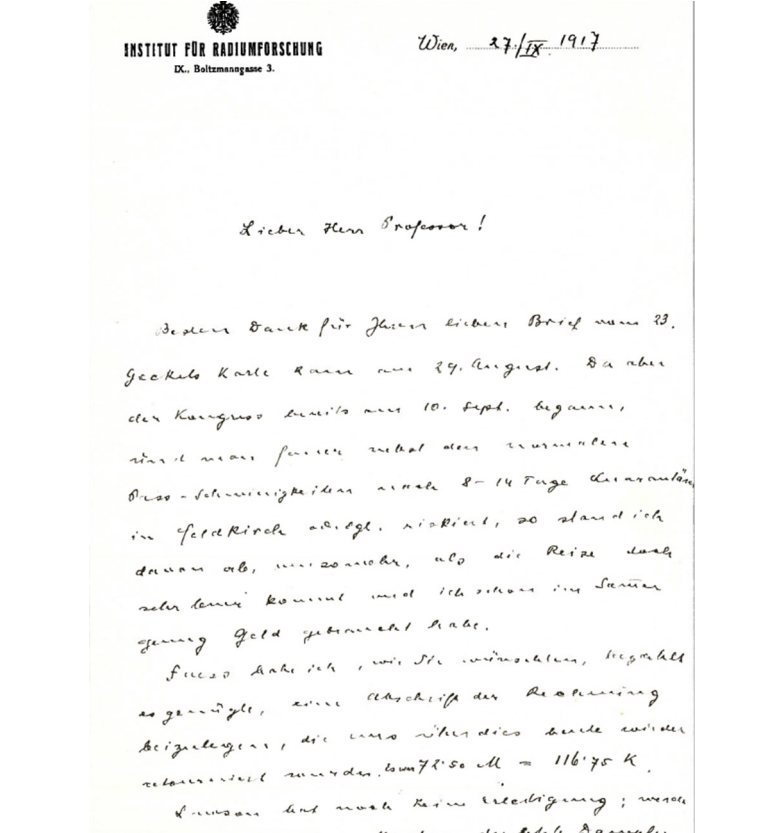 INSTITUT FÜR RADIUMFORSCHUNG
IX., Boltzmanngasse 3.
Wien, 27/IX 1917
Lieber Herr Professor!
Besten Dank für Ihren lieben Brief vom 23.
Gockels Karte kam am 29. August. Da aber
der Kongress bereits am 10. Sept. begann,
und man ferner nebst den normalen
Pass-Schwierigkeiten noch 8-14 Tage Quarantäne
in Feldkirch riskiert, so stand ich
davon ab, umsomehr, als die Reise doch
sehr teuer kommt und ich schon im Sommer
genug Geld gebraucht habe.
Fuess habe ich, wie Sie wünschten, bezahlt
es genügte, eine Abschrift der Rechnung
beizulegen, die uns überdies heute wieder
retourniert wurde. 72·50 M = 116·75 K.
hat noch keine Erledigung; werde